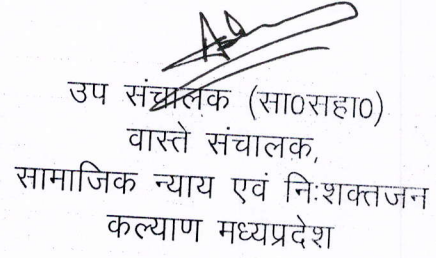 उप संचालक (सा०सहा०)
वास्ते संचालक,
सामाजिक न्याय एवं निःशक्तजन
कल्याण मध्यप्रदेश